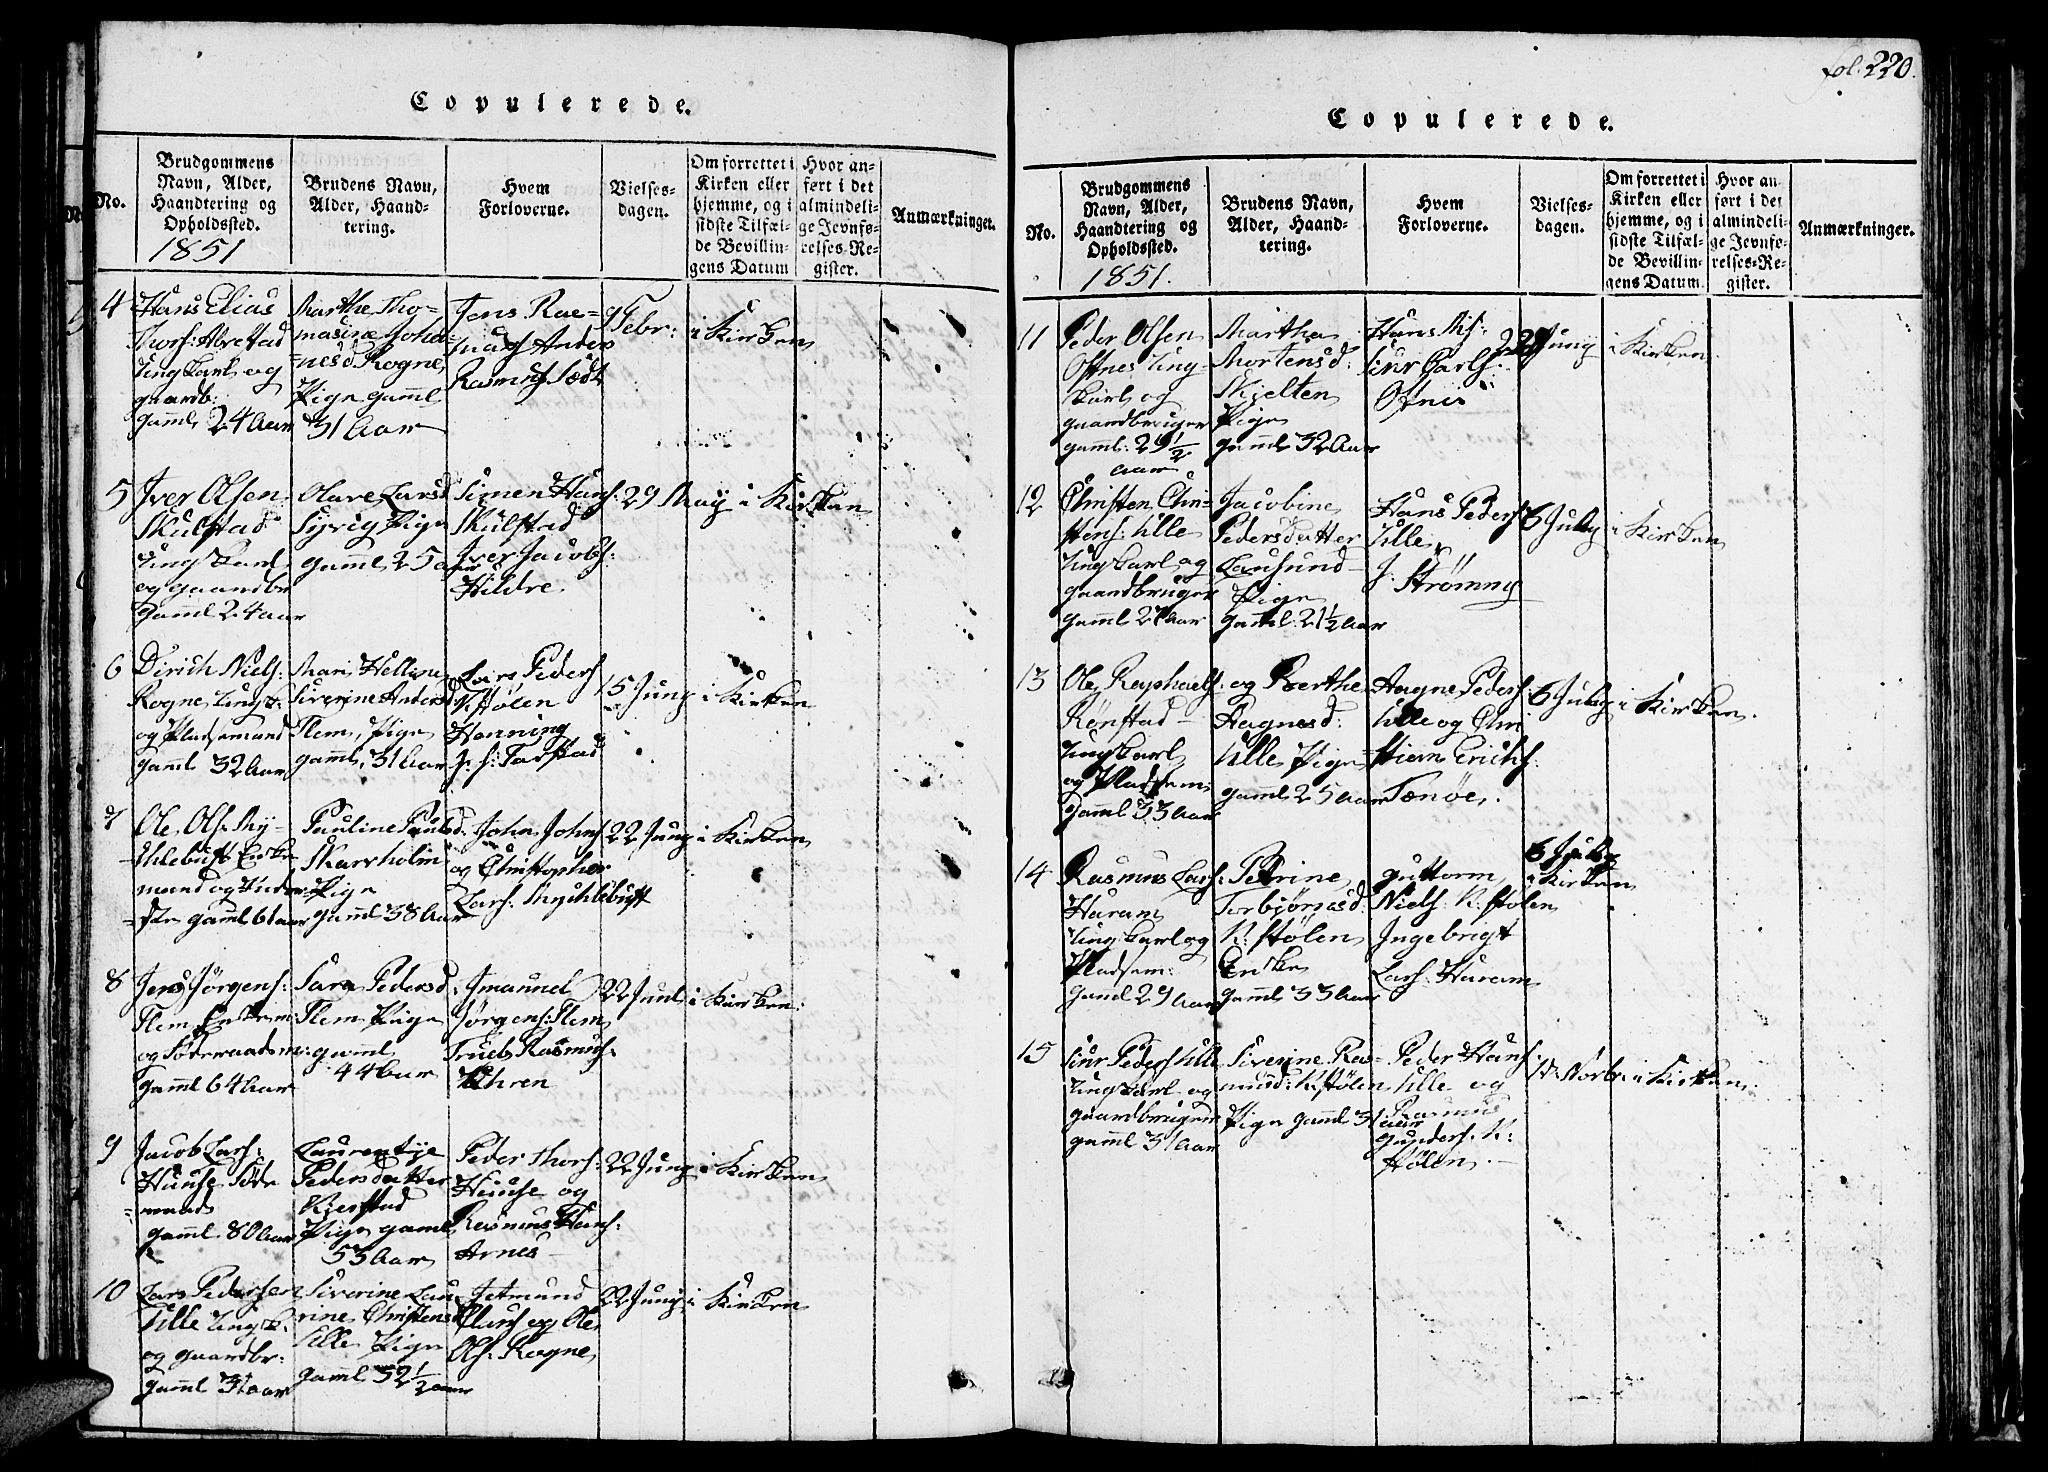 fol. 220.
Copulerede.
No.
Brudgommens
Navn, Alder,
Haandtering og
Opholdssted.
1851
Brudens Navn,
Alder, Haand-
tering.
Hvem
Forloverne.
Vielses-
dagen.
Om forrettet i
Kirken eller
hjemme, og i
sidste Tilfæl-
de Bevillin-
gens Datum
Hvor an-
ført i det
almindeli-
ge Jevnfø-
relses-Re-
gister.
Anmærkninger.
4
Hans Elias
Thors: Abrstad
Ungkarl og
gaardb:
gaml 24 Aar
Marthe Tho-
masine Joha-
nesd Rogne
Pige gaml
31 Aar
Jens Ras-
Anders
Rasmus Sædt
9 Febr:
i Kirken
5
Iver Olsen
Skulstad
Ungkarl
og gaardbr
gaml 24 aar
Olave Larsd
Syvig Pige
gaml 25 aar
Simen Hans:
Skulstad
Iver Jacobs:
Hildre
29 May
i Kirken
6
Dirich Niels:
Rogne Ungk:
og Pladsmand
gaml 32 Aar
Mari Hellene
Siverine Andersd
Flem, Pige
gaml 31 Aar
Lars Peders
K:stølen
Henning
J. s: Farstad
15 Juny
i Kirken
7
Ole Ols: My-
khlebust Enke-
mand og
gaml 61 aar
Pauline Paulsd
Skarholm
Pige
gaml 38 Aar
John Johns
og Christopher
Lars: Mychlebust
22 Juny
i Kirken
8
Jens Jørgens:
Flem Enkem:
og Føderaadsm:
gaml 64 Aar
Sara Pedersd
Flem Pige
gaml
44 aar
Imanuel
Jørgens: Flem
Truels Rasmus:
Uhren
22 Juni
i Kirken
9
Jacob Lars:
Huuse Føde
gaml 80 Aar
Laurentze
Pedersdatter
Kierstad
Pige gaml
53 Aar
Peder Thors:
Huuse og
Rasmus Hans:
Arnes
22 Juny
i Kirken
10
Lars Pedersen
Ulle Ungk.
og gaardbr:
gaml 31 aar
Siverine Lau-
rine Christensd
Ulle Pige
gaml 32 1/2 aar
Jetmund
Clus og Ole
Ols: Rogne
22 Juny
i Kirken
Copulerede.
No.
Brudgommens
Navn, Alder,
Haandtering og
Opholdssted.
1851.
Brudens Navn,
Alder, Haand-
tering.
Hvem
Forloverne.
Vielses-
dagen.
Om forrettet i
Kirken eller
hjemme, og i
sidste Tilfæl-
de Bevillin-
gens Datum.
Hvor an-
ført i det
almindeli-
ge Jevnfø-
relses-Re-
gister.
Anmærkninger.
11
Peder Olsen
Oftnes Ung-
karl og
gaardbruger
gaml: 29 1/2
aar
Martha
Mortensd:
Skjelten
Pige
gaml 32 Aar
Hans
Siur Carls:
Oftnes
22 Juny
i Kirken
12
Christen Chri-
stens: Ulle
Ungkarl og
gaardbruger
gaml 27 Aar
Jacobine
Pedersdatter
Lausund
Pige
gaml: 21 1/2 Aar
Hans Peders
Ulle,
J. Strømmes
6 July
i Kirken
13
Ole Raphaels:
Rønstad
Ungkarl
og Pladsem:
gaml 33 Aar
og Berthe
Hagnesd:
Ulle Pige
gaml 25 Aar
Hagne Peders:
Ulle og Chri
stiern Erichs:
Tenøe.
6 July
i Kirken.
14
Rasmus Lars:
Haram
Ungkarl og
Pladsem:
gaml 29 Aar
Petrine
Torbjørnsd:
K:stølen
Enke
gaml 33 Aar
Guttorm
Niels: K:stølen
Ingebrigt
Lars: Haram
6 July
i Kirken
15
Siur Peders Ulle
Ungkarl og
gaardbruger
gaml 31 Aar
Siverine Ras-
musd: K:stølen
Pige gaml 31 aar
Peder Hans:
Ulle og
Rasmus
Gunders: K:
stølen.
i Kirken.